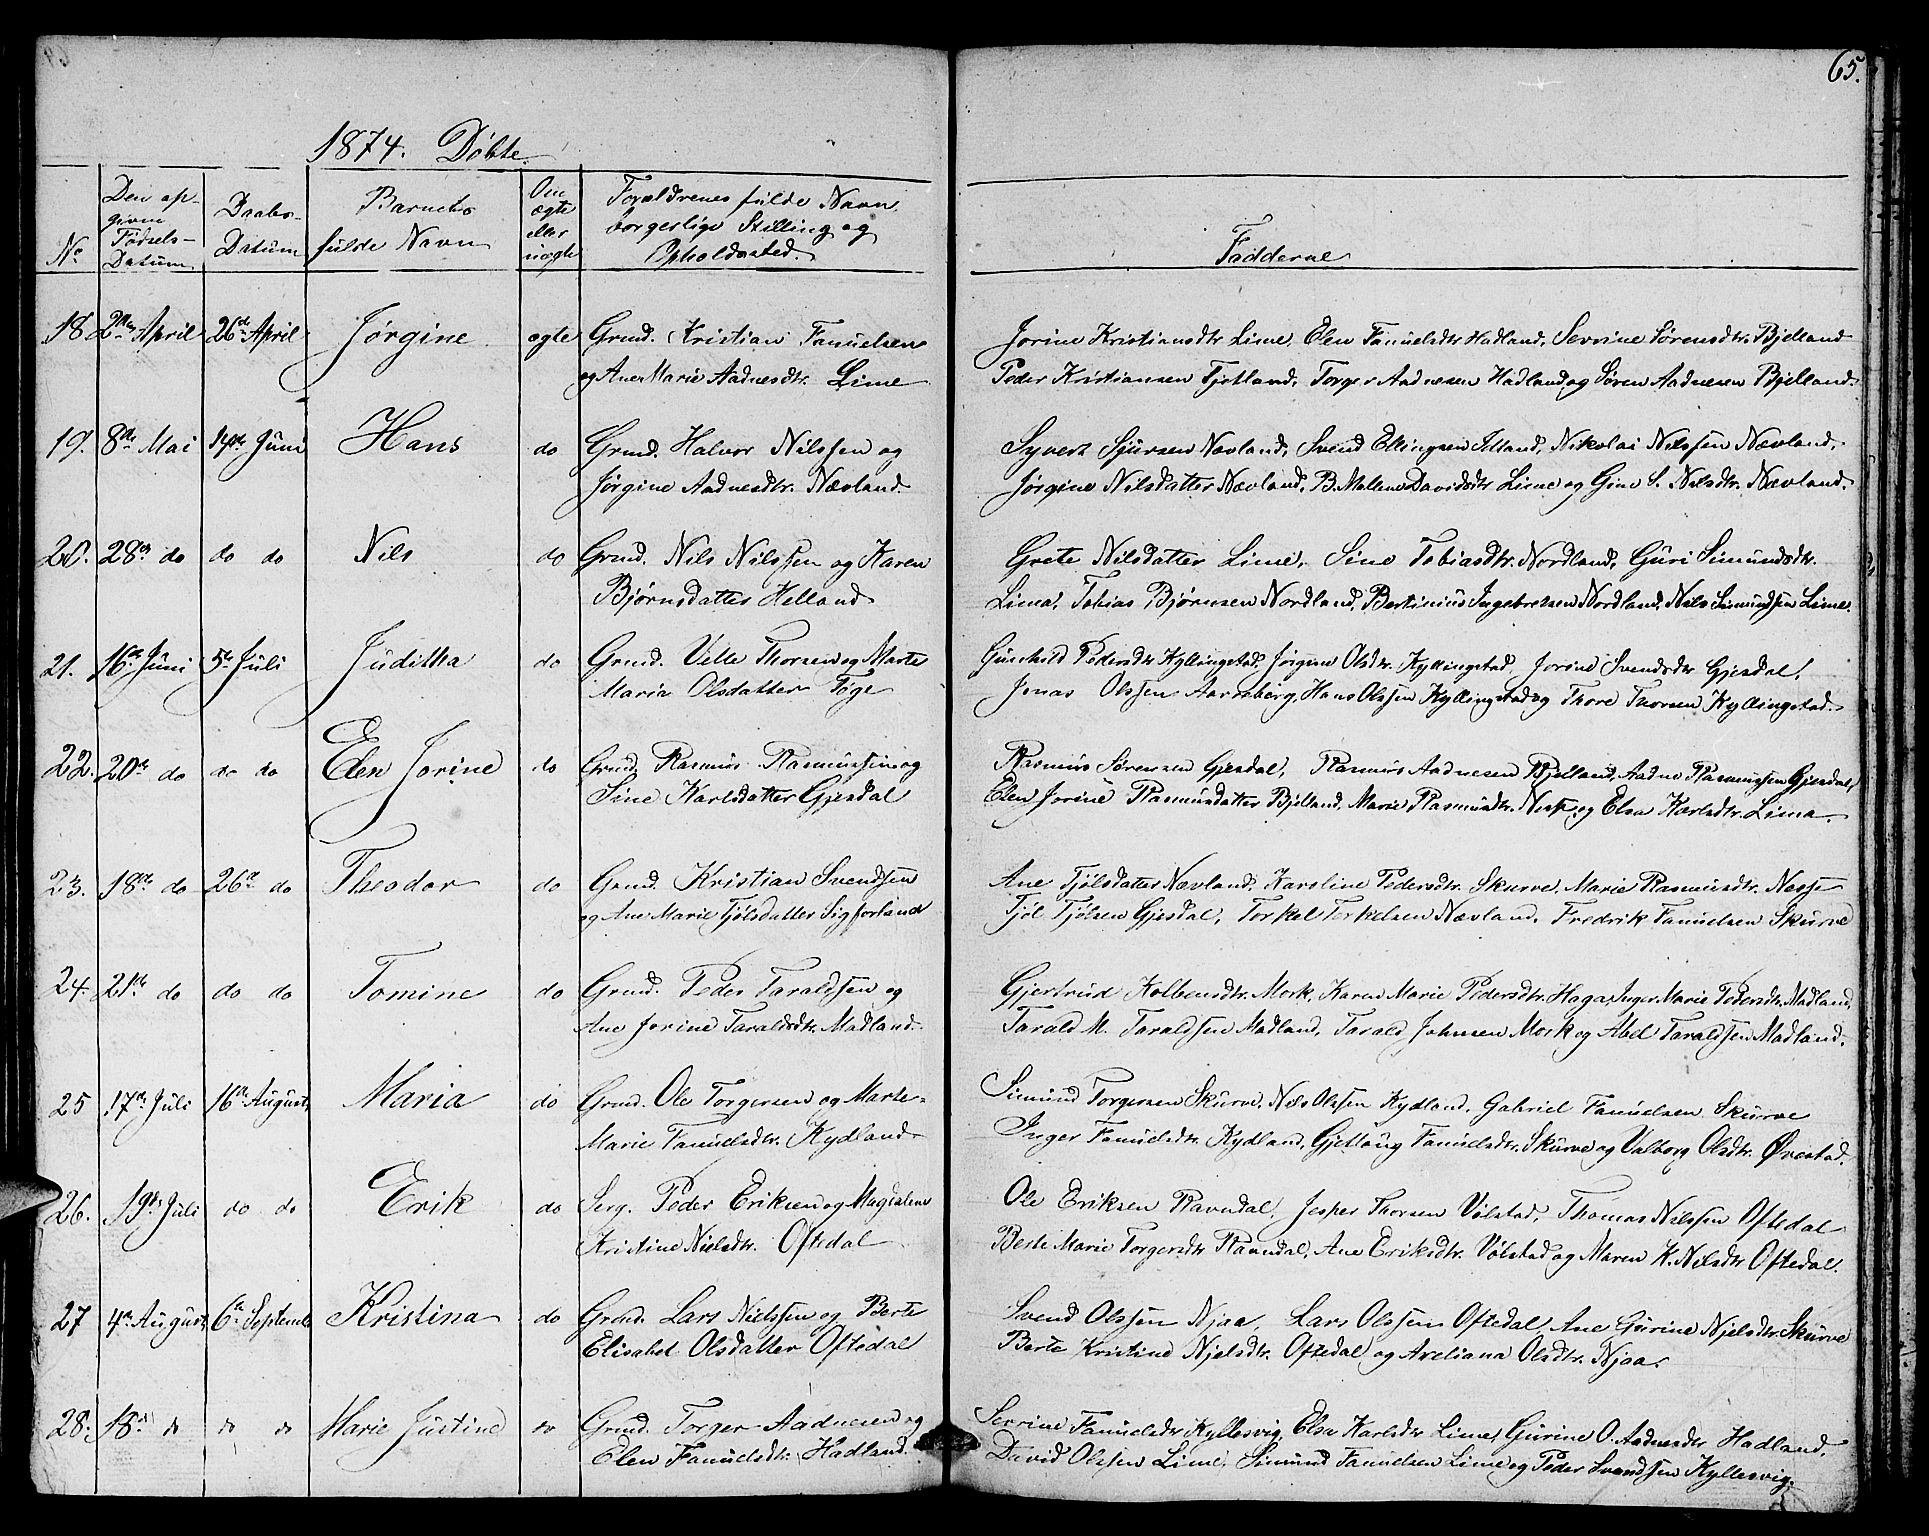 65.
1874. Døbte.
No
Den op-
given
Fødsels-
Datum
Daabs-
Datum
Barnets
fulde Navn
Om
ægte
eller
uægte
Forældrenes fulde Navn,
borgerlige Stilling og
Opholdssted.
Fadderne
18. 2den April 26de April Jørgine ægte Grmd. Kristian Fanuelsen
og Ane Marie Aadnesdtr. Lime
Jorine Kristiansdtr Lime, Elen Fanuelsdtr Hadland, Sevrine Sørensdtr. Bjelland
Peder Kristiansen Tjetland, Torger Aadnesen Hadland og Søren Aadnesen Bjelland.
19. 8de Mai 14de Juni Hans do Grmd. Halvor Nilssen og
Jørgine Aadnesdtr. Nævland.
Syvert Sjursen Nævland, Svend Ellingsen, Nikolai Nilssen Nævland,
Jørgine Nilsdatter Nævland, B. Mallene Davidsdtr Lime og Gine S. Nilsdtr. Nævland.
20. 28de do do do Nils do Grmd. Nils Nilssen og Karen
Bjørnsdatter Helland
Grete Nilsdatter Lime, Sine Tobiasdtr. Nordland, Guri Simundsdtr.
Lima, Tobias Bjørnsen Nordland, Bertinius Ingebretsen Nordland, Nils Simundsen Lime.
21. 16de Juni 5te Juli Juditha do Grmd. Velle Thorsen og Marte
Maria Olsdatter Tøge
Gunhild Pedersdtr Kyllingstad, Jørgine Olsdtr. Kyllingstad, Jorine Svendsdtr Gjesdal,
Jonas Olssen Aarrsberg, Hans Olssen Kyllingstad og Thore Thorsen Kyllingstad.
22. 20de do do do Elen Jorine do Grmd. Rasmus Rasmussen og
Sine Karlsdatter Gjesdal
Rasmus Sørensen Gjesdal, Rasmus Aadnesen Bjelland, Aadne Rasmussen Gjesdal,
Elen Jorine Rasmusdatter Bjelland, Marie Rasmusdtr. Nesse og Elen Karlsdtr. Lima.
23. 18de do 26de do Theodor do Grmd. Kristian Svendsen
og Ane Marie Tjølsdatter Sigforland
Ane Tjølsdatter Nævland, Karoline Pedersdtr. Skurve, Marie Rasmusdtr. Nesse
Tjøl Tjølsen Gjesdal, Torkel Terkelsen Nævland, Fredrik Fanuelsen Skurve
24. 21de do do do Tomine do Grmd. Peder Taraldsen og
Ane Jorine Taraldsdtr. Madland.
Gjertrud Kolbensdtr. Mork, Karen Marie Pedersdtr. Haga, Inger Marie Pedersdtr. Madland,
Tarald M. Taraldsen Madland, Tarald Johnsen Mork og Abel Taraldsen Madland.
25 17de Juli 16de August Maria do Grmd. Ole Torgersen og Marte
Marie Fanuelsdtr. Kydland
Simund Torgersen Skurve, Nils Olssen Kydland, Gabriel Fanuelsen Skurve
Inger Fanuelsdtr. Kydland, Gjetlaug Fanuelsdtr. Skurve og Valborg Olsdtr. Øvestad.
26. 19de Juli do do Erik do Serg. Peder Eriksen og Magdalene
Kristine Nielsdtr. Oftedal
Ole Eriksen Ravndal, Jesper Thorsen Vølstad, Thomas Nilssen Oftedal
Berte Marie Torgersdtr Ravndal, Ane Eriksdtr. Vølstad og Maren K. Nilsdtr Oftedal.
27 4de August 6te Septembr Kristina do Grmd. Lars Nielssen og Berte
Elisabet Olsdatter Oftedal
Svend Olssen Njaa, Lars Olssen Oftedal, Ane Gurine Njelsdtr. Skurve
Berte Kristine Njelsdtr. Oftedal og Aveliana Olsdtr. Njaa.
28. 18de do do do Marie Justine do Grmd. Torger Aadnesen og
Elen Fanuelsdtr. Hadland.
Serrine Fanuelsdtr Kyllesvig, Elen Karlsdtr Lime, Gurine O. Aadnesdtr Hadland,
David Olssen Lime, Simund Fanuelsen Lime og Peder Svendsen Kyllesvig.